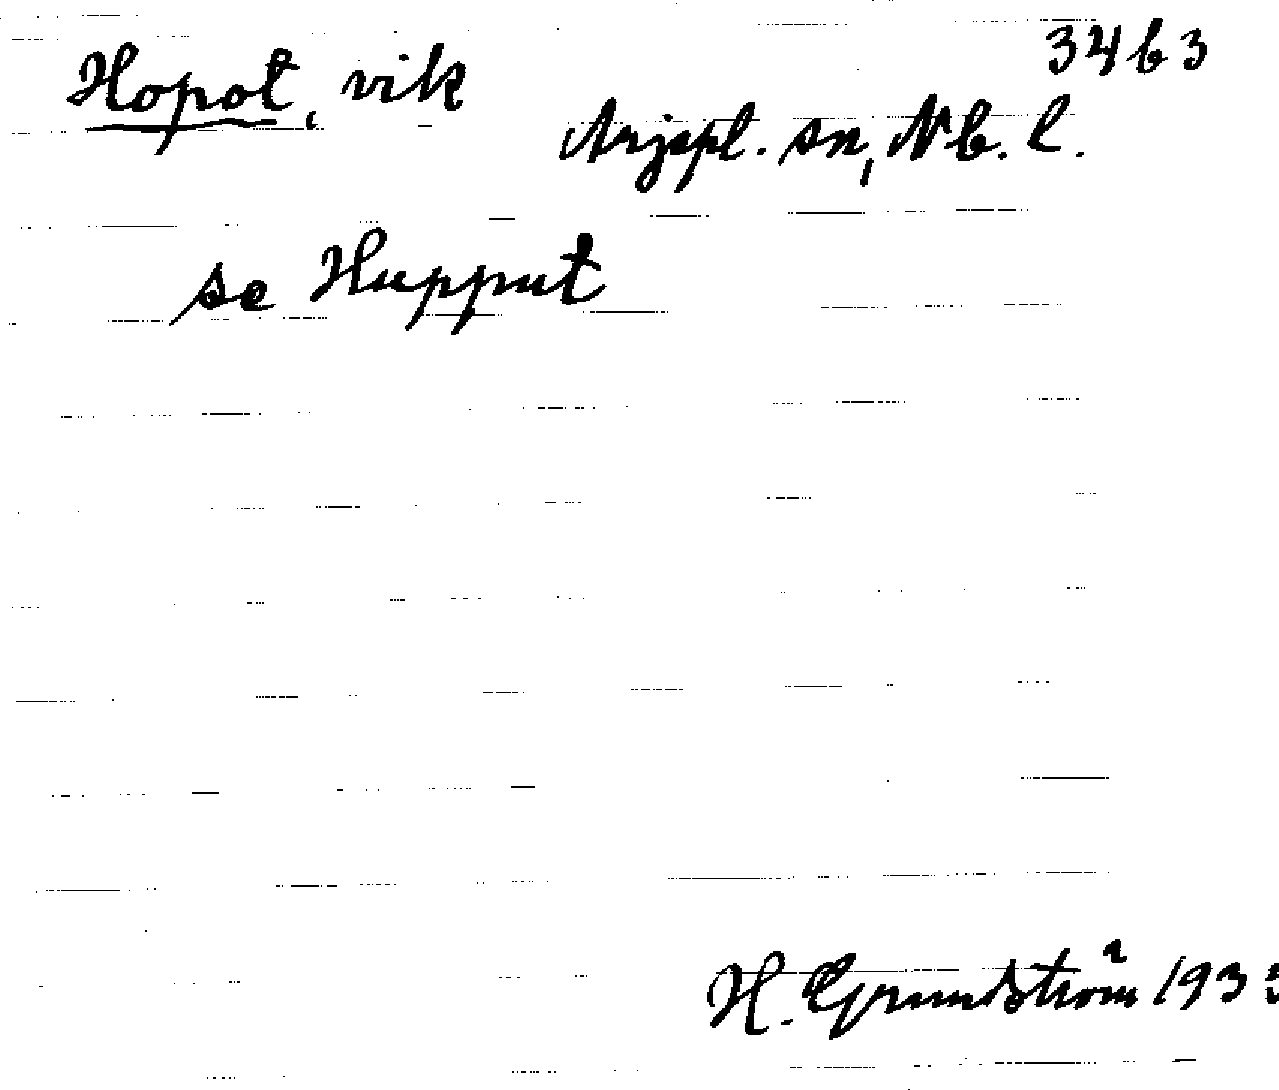 3463
Hopot, vik
Arjepl. sn, Nb. l.
se Hupput
H. Grundström